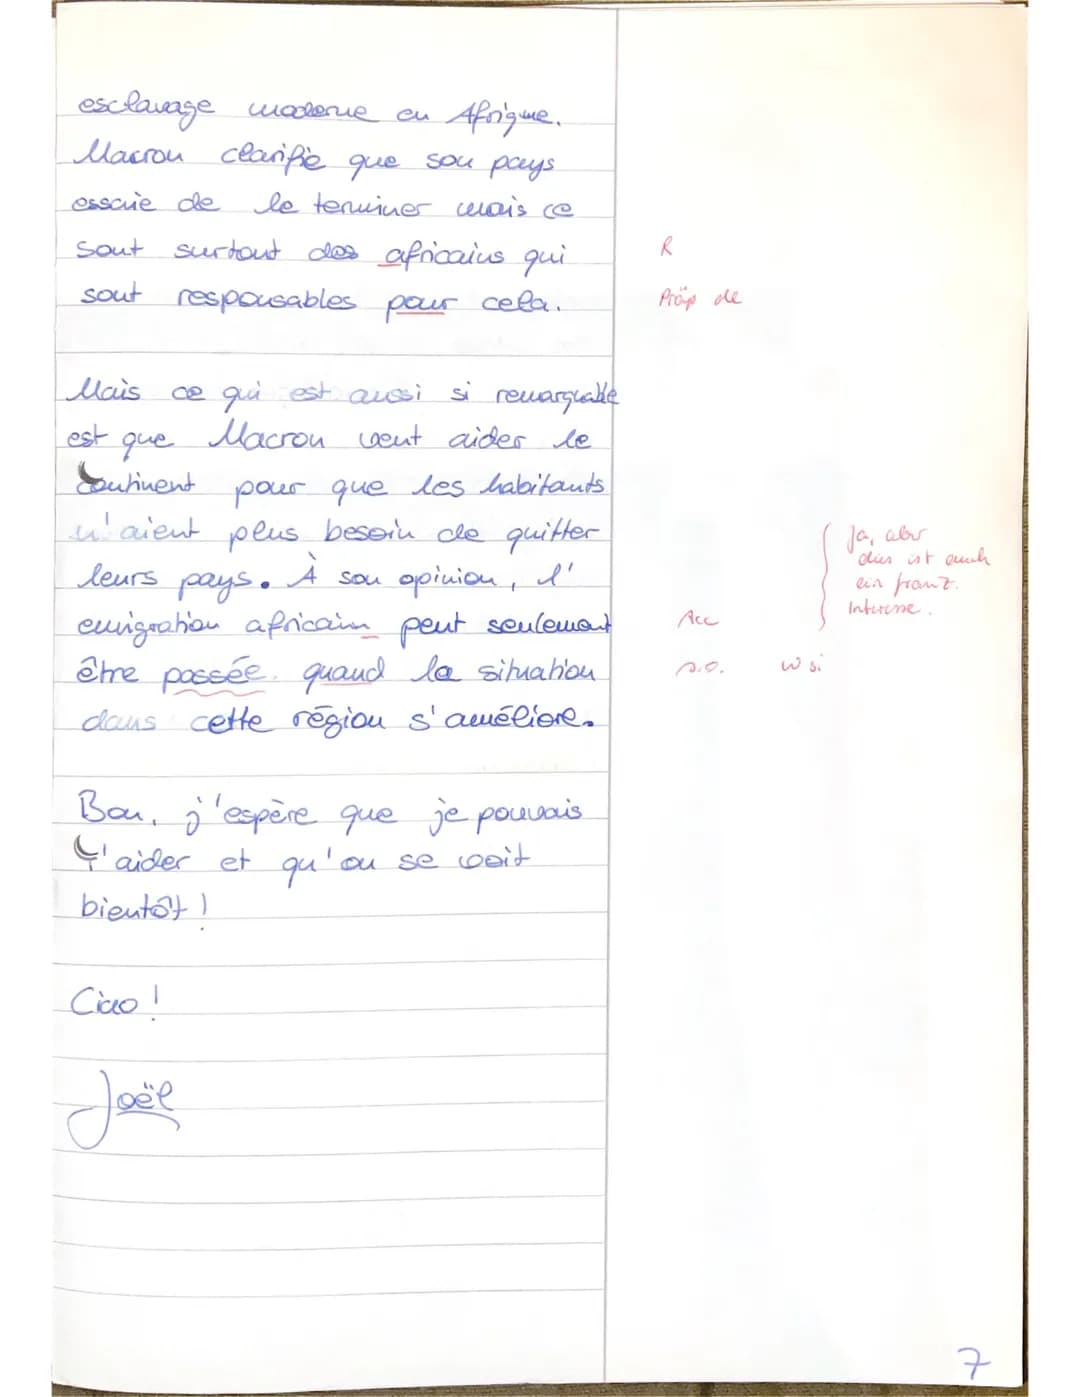 esclavage moderne en Afrique.
Macron clarifie que son pays
essaie de le terminer mais ce
sont surtout des africains qui
R
sont responsables pour cela.
Präp de
Mais ce qui est aussi si remarquable
est que Macron veut aider le
continent pour que les habitants
n'aient plus besoin de quitter
leurs pays. À son opinion, l'
Ja, aber
dies ist auch
ein franz.
Interesse.
émigration africain peut seulement
Acc
être passée quand la situation
s.o. W si
dans cette région s'améliore.
Bon, j'espère que je pouvais
t'aider et qu'on se voit
bientôt !
Ciao !
Joël
7